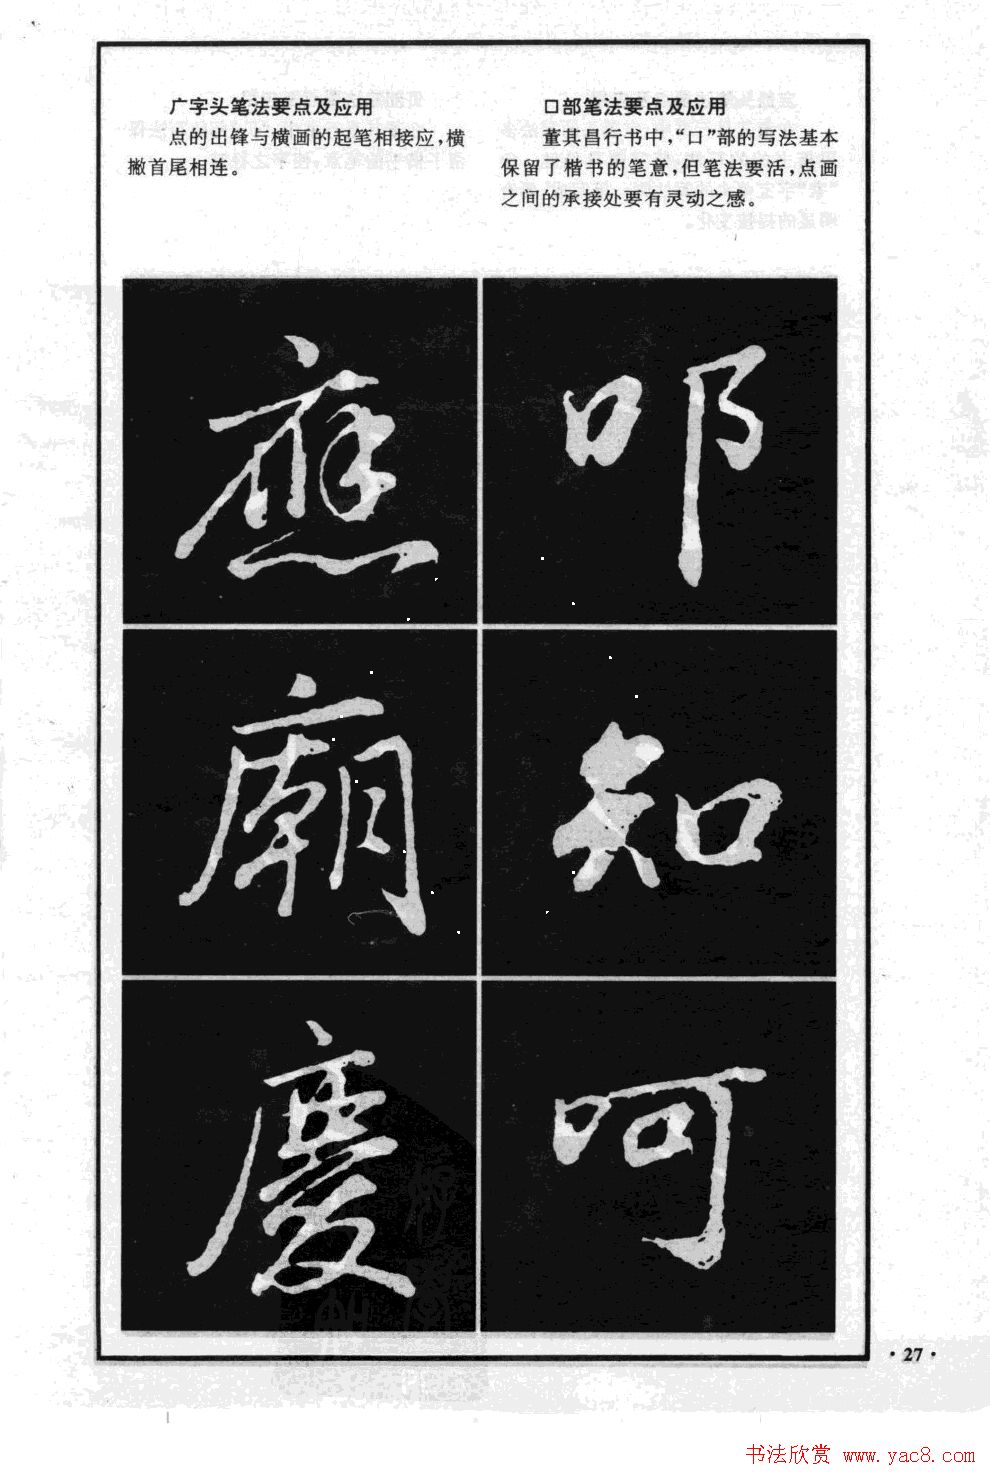 广字头笔法要点及应用
点的出锋与横画的起笔相接应，横
撇首尾相连。
口部笔法要点及应用
董其昌行书中，“口”部的写法基本
保留了楷书的笔意，但笔法要活，点画
之间的承接处要有灵动之感。
應
叩
廟
知
慶
呵
·27·
书法欣赏 www.yac8.com